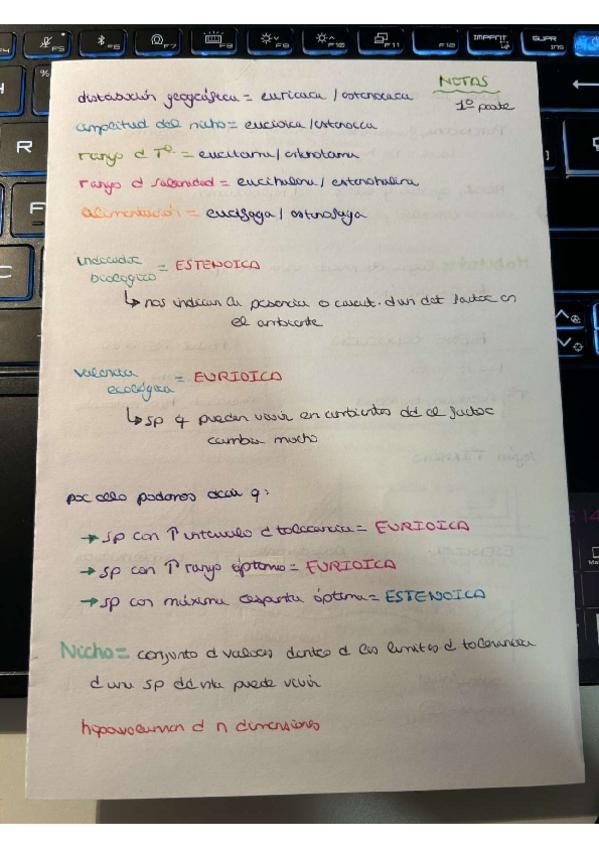 NOTAS
1º parte
distribución geográfica = euricora / estenocora
amplitud del nicho = eurioica / estenoica
rango d Tº = euriterma / estenoterma
rango d salinidad = eurihalina / estenohalina
alimentación = eurifaga / estenofaga
indicador biológico = ESTENOICA
↳ nos indican la presencia o caract. d un det factor en
el ambiente
valencia ecológica = EURIOICA
↳ sp q pueden vivir en ambientes dd el factor
cambia mucho
por ello podemos decir q:
→ sp con ↑ intervalo d tolerancia = EURIOICA
→ sp con ↑ rango óptimo = EURIOICA
→ sp con máxima respuesta óptima = ESTENOICA
Nicho = conjunto d valores dentro d los limites d tolerancia
d una sp puede vivir
hipervolumen d n dimensiones
R
F5
F6
F7
F8
F9
F10
F11
F12
IMPR PANT
SUPR
INS